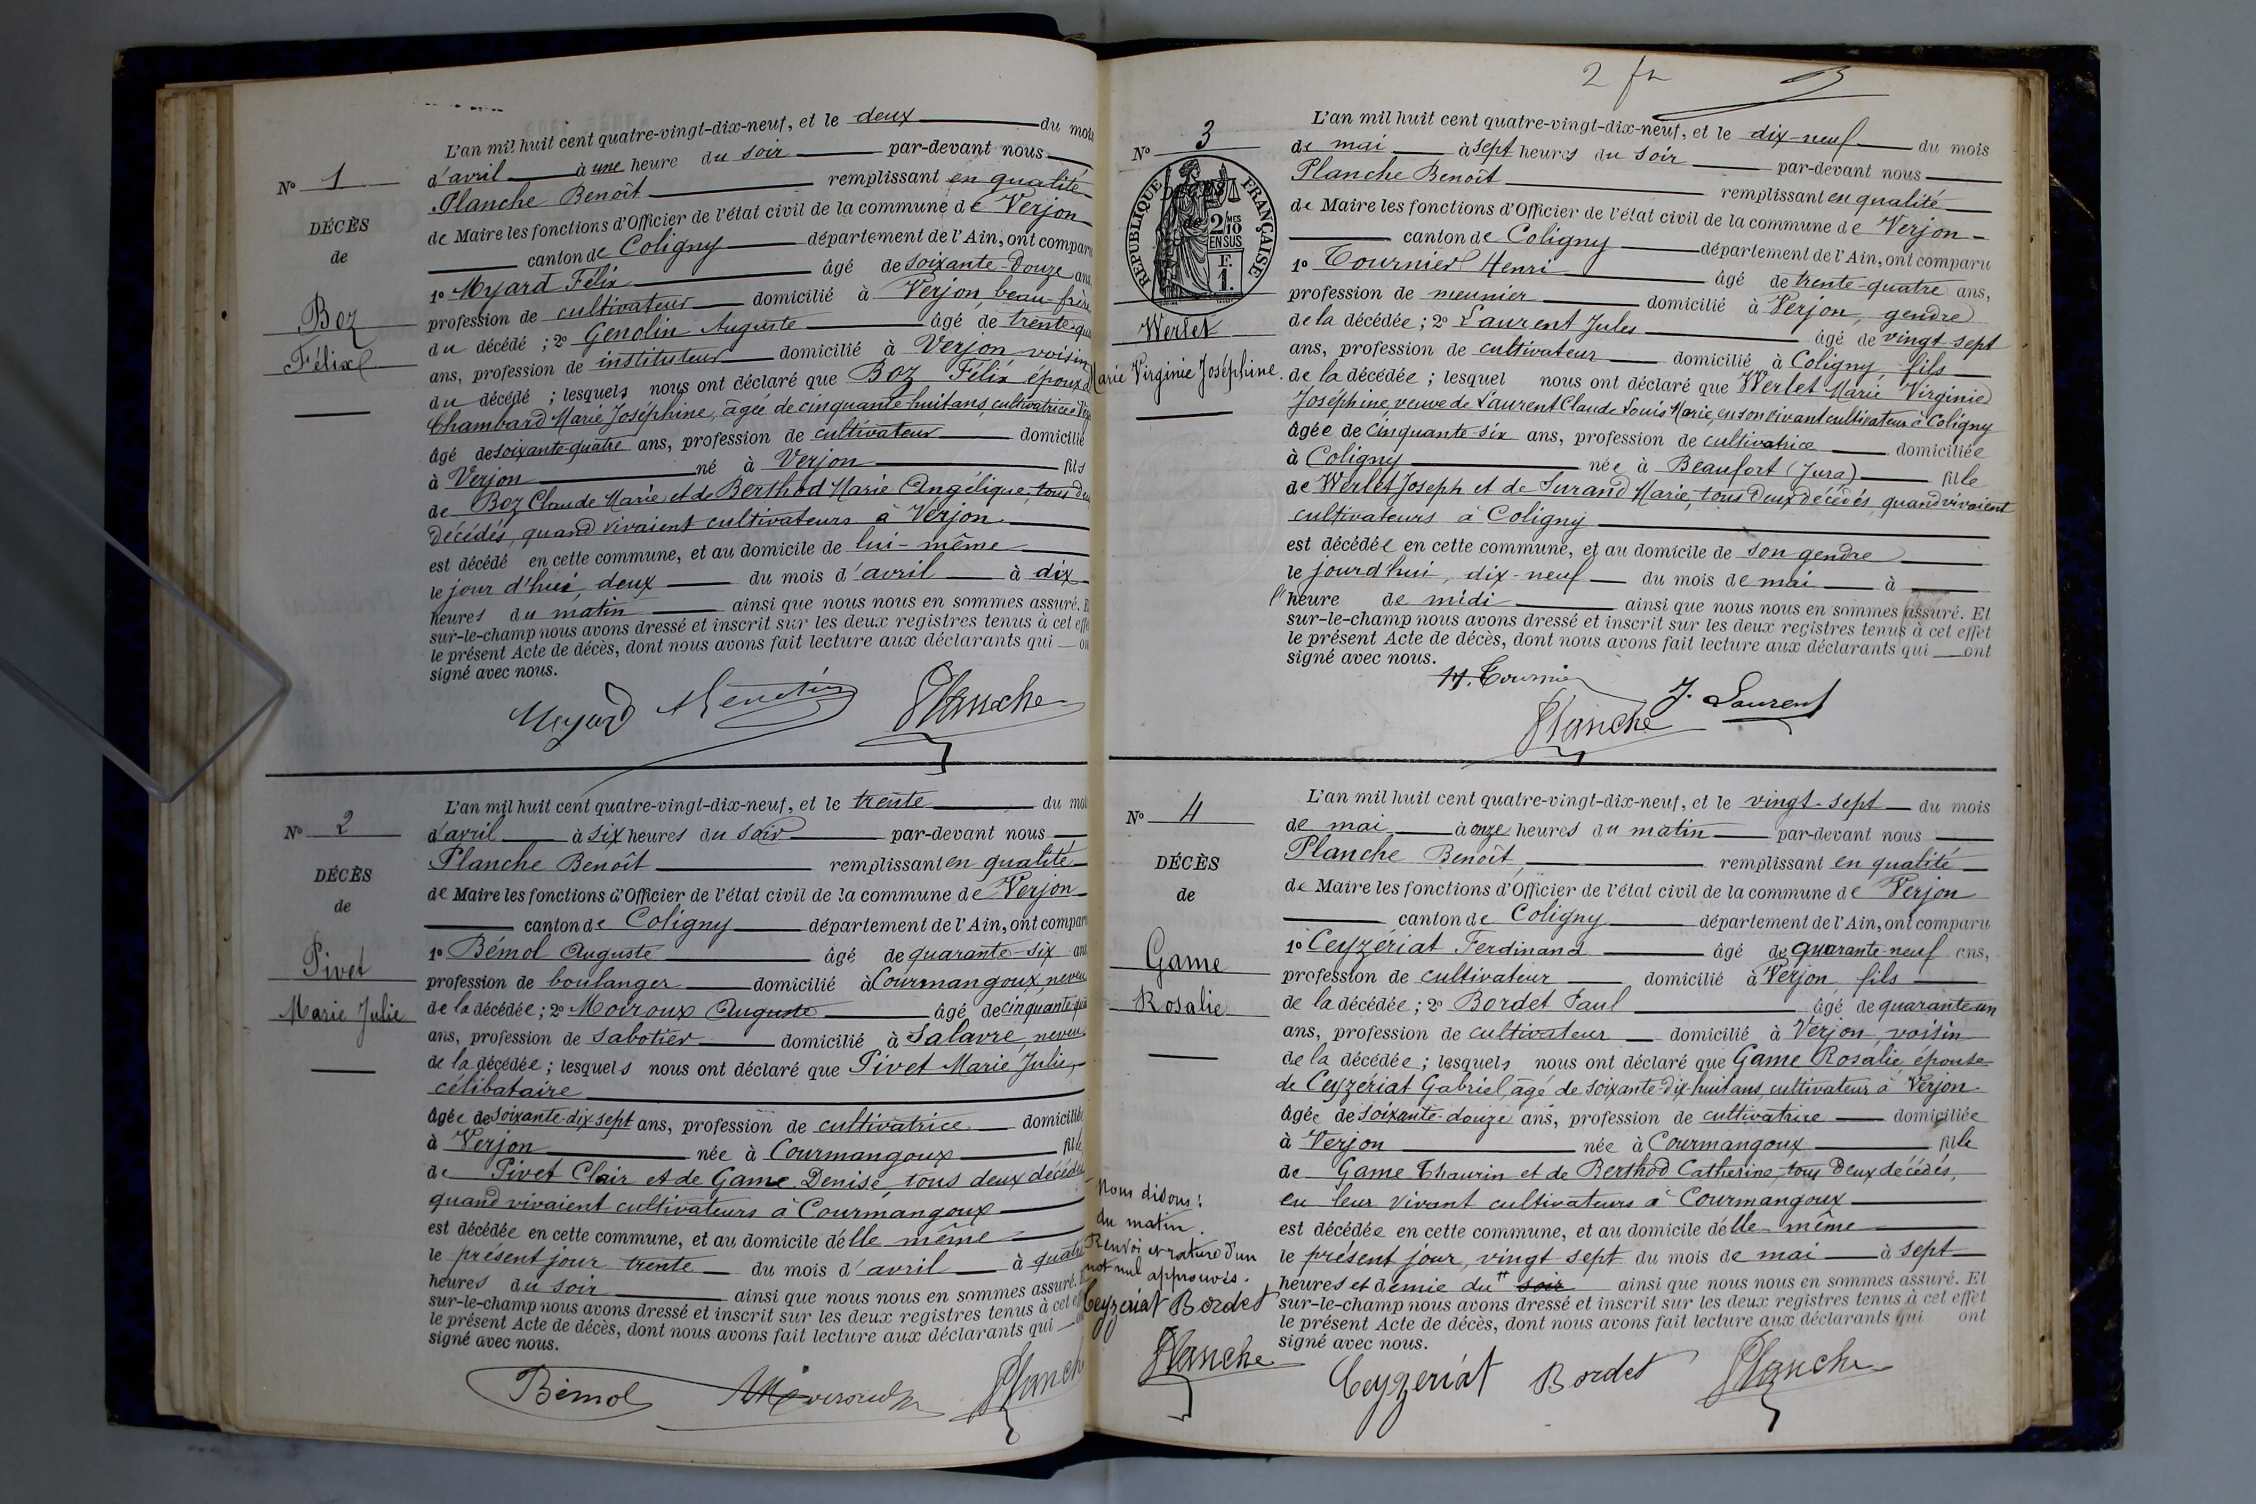 N° 1
DÉCÈS
de
Boz
Félix
L'an mil huit cent quatre-vingt-dix-neuf, et le deux du mois
d'avril à une heure du soir par-devant nous
Planche Benoît remplissant en qualité
de Maire les fonctions d'Officier de l'état civil de la commune de Verjon
canton de Coligny département de l'Ain, ont comparu
1° Myard Félix âgé de soixante-douze ans
profession de cultivateur domicilié à Verjon, beau-frère
du décédé ; 2° Genolin Auguste âgé de trente
ans, profession de instituteur domicilié à Verjon, voisin
du décédé ; lesquels nous ont déclaré que Boz Félix époux de
Chambard Marie Joséphine, âgée de cinquante-huit ans, cultivatrice à
âgé de soixante-quatre ans, profession de cultivateur domicilié
à Verjon né à Verjon fils
de Boz Claude Marie et de Berthod Marie Angélique, tous deux
décédés, quand vivaient cultivateurs à Verjon.
est décédé en cette commune, et au domicile de lui-même
le jour d'hui, deux du mois d'avril à dix
heures du matin ainsi que nous nous en sommes assuré. Et
sur-le-champ nous avons dressé et inscrit sur les deux registres tenus à cet effet
le présent Acte de décès, dont nous avons fait lecture aux déclarants qui ont
signé avec nous.
Myard Planche
N° 2
DÉCÈS
de
Pivet
Marie Julie
L'an mil huit cent quatre-vingt-dix-neuf, et le trente du mois
d'avril à six heures du soir par-devant nous
Planche Benoît remplissant en qualité
de Maire les fonctions d'Officier de l'état civil de la commune de Verjon
canton de Coligny département de l'Ain, ont comparu
1° Bémol Auguste âgé de quarante-six ans
profession de boulanger domicilié à Courmangoux neveu
de la décédée ; 2° Moiroux Auguste âgé de cinquante
ans, profession de sabotier domicilié à Salavre, neveu
de la décédée ; lesquels nous ont déclaré que Pivet Marie Julie,
célibataire
âgée de soixante-dix sept ans, profession de cultivatrice domiciliée
à Verjon née à Courmangoux fille
de Pivet Clair et de Game Denise, tous deux décédés
quand vivaient cultivateurs à Courmangoux
est décédée en cette commune, et au domicile d'elle même
le présent jour trente du mois d'avril à quatre
heures du soir ainsi que nous nous en sommes assuré. Et
sur-le-champ nous avons dressé et inscrit sur les deux registres tenus à cet
le présent Acte de décès, dont nous avons fait lecture aux déclarants qui
signé avec nous.
Bémol Planche
N° 3
RÉPUBLIQUE FRANÇAISE
2/10
EN SUS
F.
1.
Werlet
Marie Virginie Joséphine.
L'an mil huit cent quatre-vingt-dix-neuf, et le dix-neuf du mois
de mai à sept heures du soir par-devant nous
Planche Benoît remplissant en qualité
de Maire les fonctions d'Officier de l'état civil de la commune de Verjon
canton de Coligny département de l'Ain, ont comparu
1° Tournier Henri âgé de trente-quatre ans,
profession de meunier domicilié à Verjon, gendre
de la décédée ; 2° Laurent Jules âgé de vingt-sept
ans, profession de cultivateur domicilié à Coligny, fils
de la décédée ; lesquel nous ont déclaré que Werlet Marie Virginie
Joséphine, veuve de Laurent Claude Louis Marie, en son vivant cultivateur à Coligny
âgée de cinquante-six ans, profession de cultivatrice domiciliée
à Coligny née à Beaufort (Jura) fille
de Werlet Joseph et de Surand Marie, tous deux décédés, quand vivaient
cultivateurs à Coligny
est décédée en cette commune, et au domicile de son gendre
le jourd'hui, dix-neuf du mois de mai à
heure de midi ainsi que nous nous en sommes assuré. Et
sur-le-champ nous avons dressé et inscrit sur les deux registres tenus à cet effet
le présent Acte de décès, dont nous avons fait lecture aux déclarants qui ont
signé avec nous.
H. Tournier J. Laurent
Planche
N° 4
DÉCÈS
de
Game
Rosalie
L'an mil huit cent quatre-vingt-dix-neuf, et le vingt-sept du mois
de mai à onze heures du matin par-devant nous
Planche Benoît, remplissant en qualité
de Maire les fonctions d'Officier de l'état civil de la commune de Verjon
canton de Coligny département de l'Ain, ont comparu
1° Ceyzériat Ferdinand âgé de quarante-neuf ans,
profession de cultivateur domicilié à Verjon, fils
de la décédée ; 2° Bordet Paul âgé de quarante-un
ans, profession de cultivateur domicilié à Verjon, voisin
de la décédée ; lesquels nous ont déclaré que Game Rosalie, épouse
de Ceyzériat Gabriel, âgé de soixante-dix huit ans, cultivateur à Verjon
âgée de soixante-douze ans, profession de cultivatrice domiciliée
à Verjon née à Courmangoux fille
de Game Thaurin et de Berthod Catherine, tous deux décédés,
en leur vivant cultivateurs à Courmangoux
est décédée en cette commune, et au domicile d'elle-même
le présent jour, vingt-sept du mois de mai à sept
heures et demie du soir ainsi que nous nous en sommes assuré. Et
sur-le-champ nous avons dressé et inscrit sur les deux registres tenus à cet effet
le présent Acte de décès, dont nous avons fait lecture aux déclarants qui ont
signé avec nous.
Nous disons :
du matin.
Renvoi et rature d'un
mot nul approuvés.
Ceyzeriat Bordet
Planche
Ceyzeriat Bordet Planche